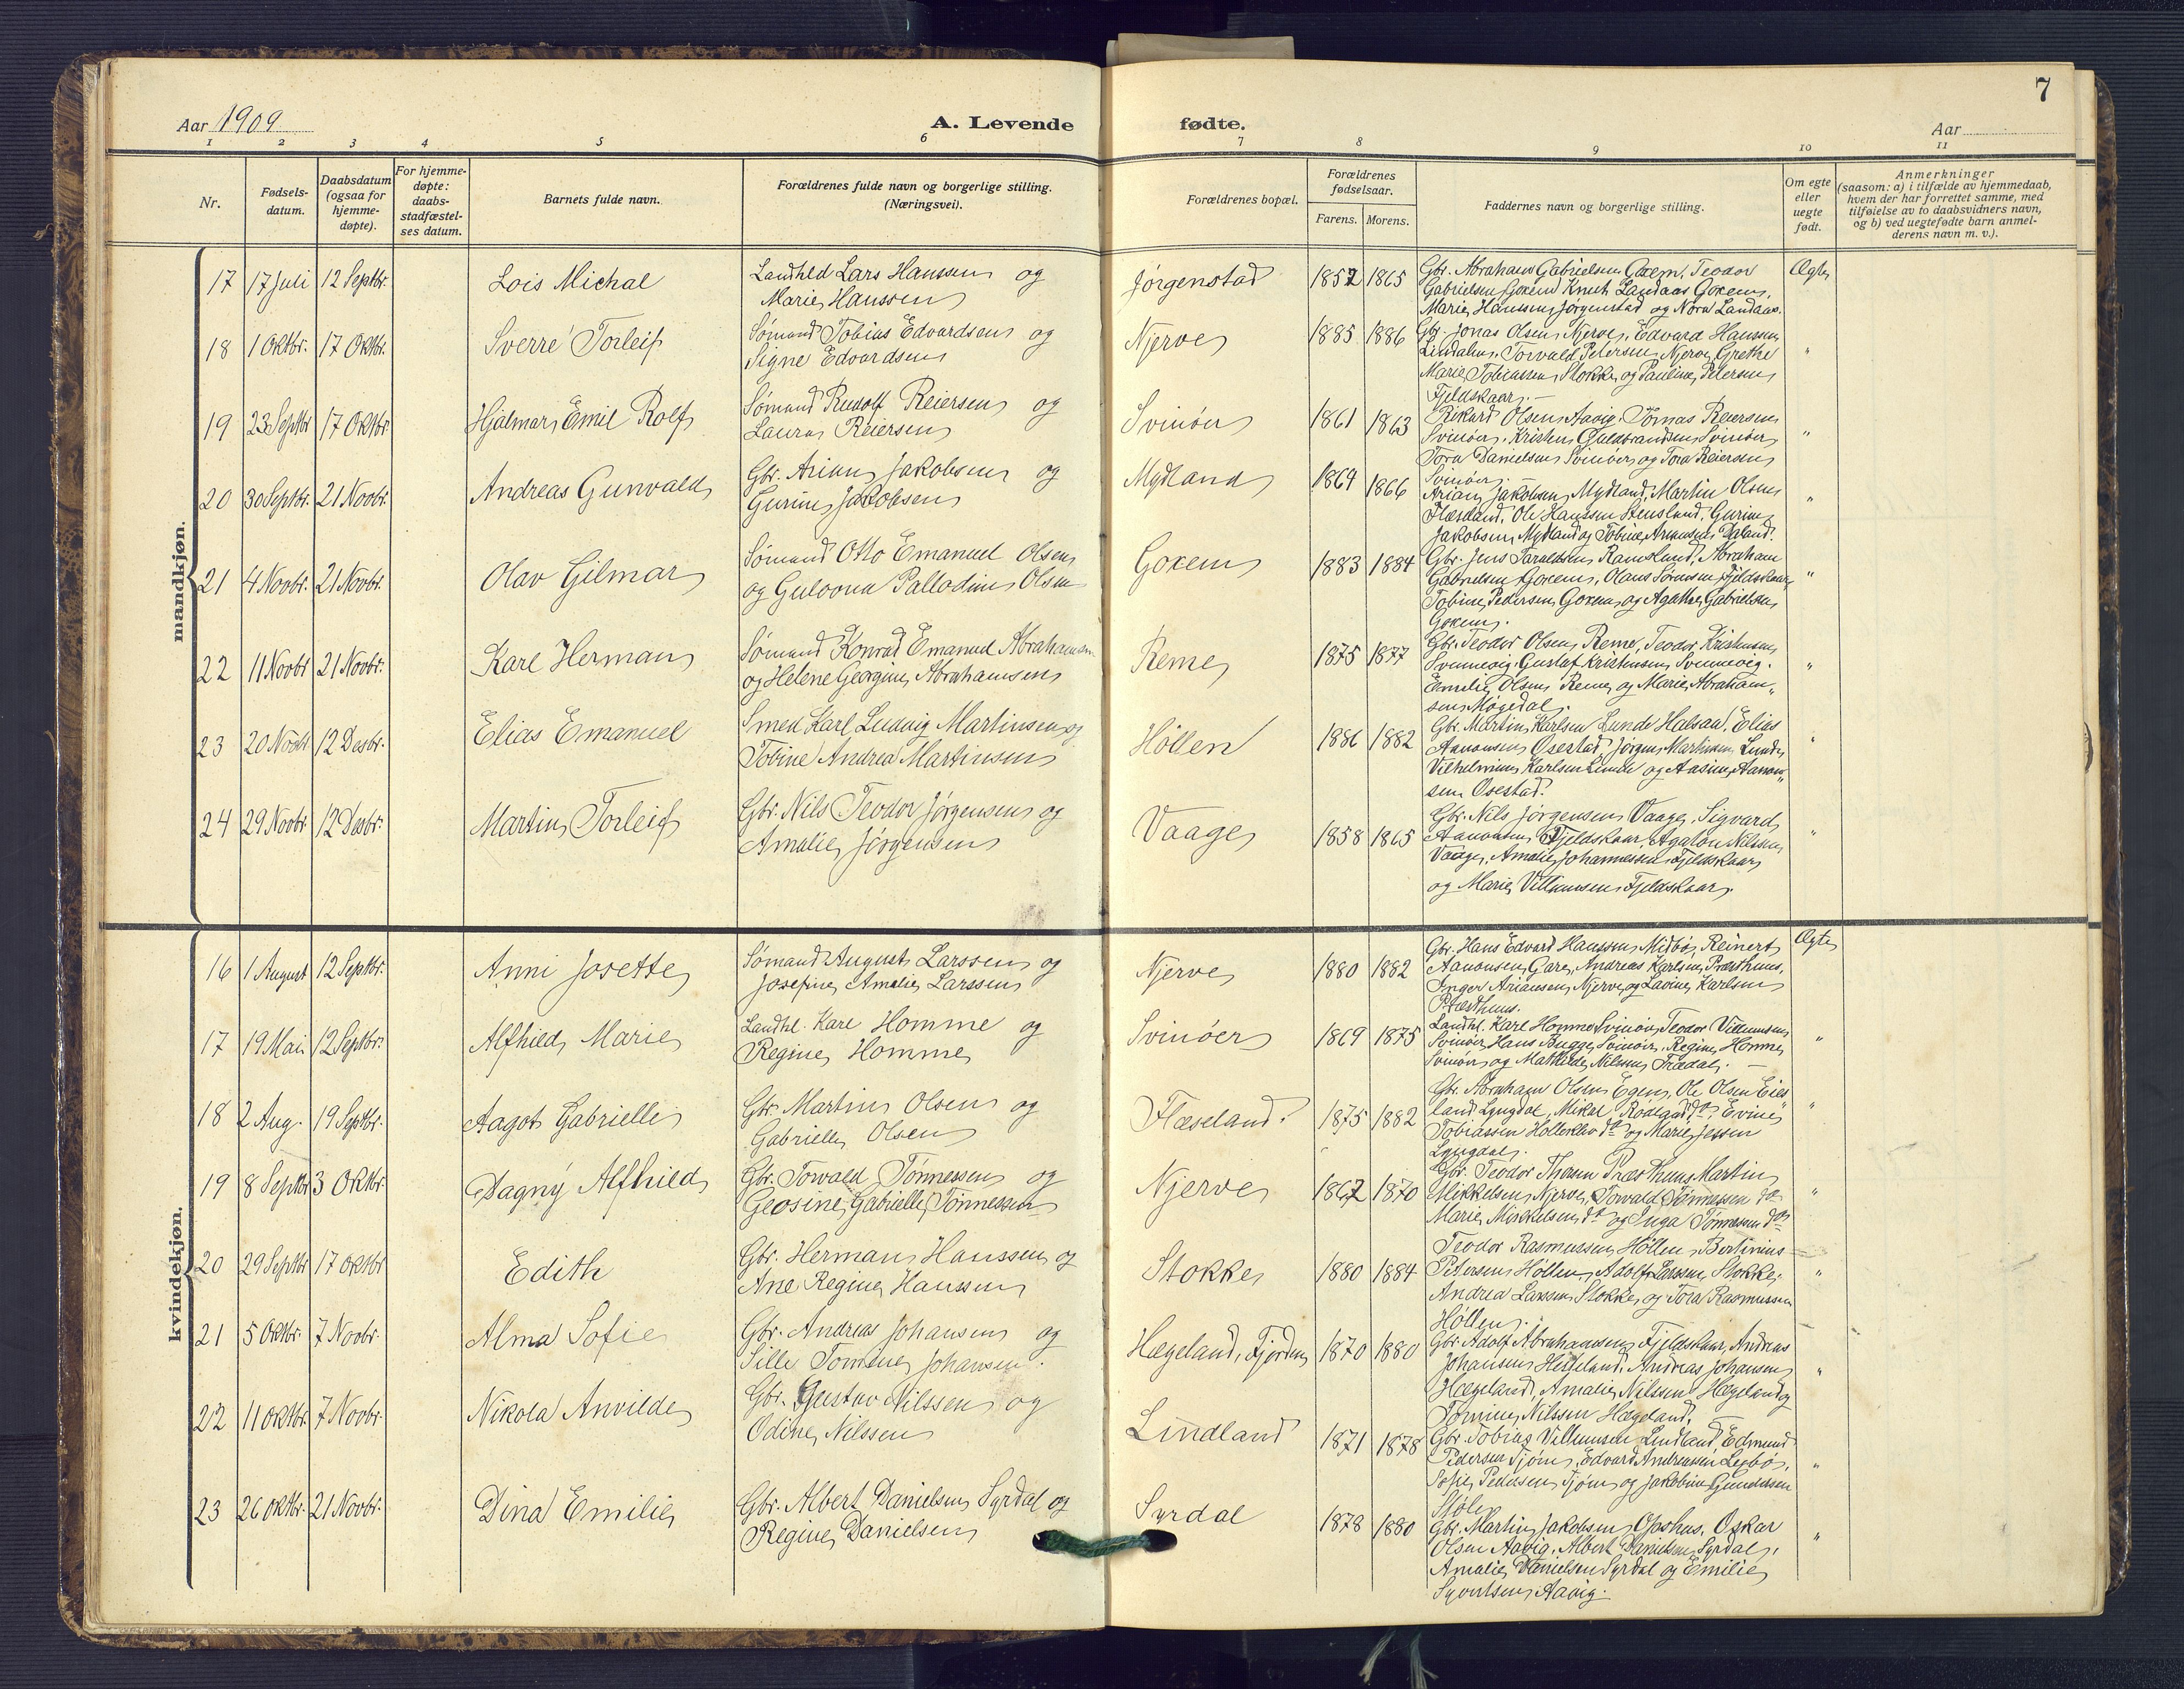 7
Aar 1909
A. Levende fødte.
Aar
1 2 3 4 5 6 7 8 9 10 11
Nr.
Fødsels-
datum.
Daabsdatum
(ogsaa for
hjemme-
døpte).
For hjemme-
døpte:
daabs-
stadfæstel-
ses datum.
Barnets fulde navn.
Forældrenes fulde navn og borgerlige stilling.
(Næringsvei).
Forældrenes bopæl.
Forældrenes
fødselsaar.
Farens. Morens.
Faddernes navn og borgerlige stilling.
Om egte
eller
uegte
født.
Anmerkninger
(saasom: a) i tilfælde av hjemmedaab,
hvem der har forrettet samme, med
tilføielse av to daabsvidners navn,
og b) ved uegtefødte barn anmel-
derens navn m. v.).
mandkjøn.
17 17 Juli 12 Septbr. Lois Michal
Landhdl Lars Hanssen og
Marie Hanssen
Jørgenstad 1852 1865
Gbr. Abraham Gabrielsen Goxem, Teodor
Gabrielsen Goxem Knut Landaas Goxem,
Marie Hanssen Jørgenstad og Nora Landaas.
Ægte
18 1 Oktbr. 17 Oktbr. Sverre Torleif
Sømand Tobias Edvardsen og
Signe Edvardsen
Njerve 1885 1886
Gbr. Jonas Olsen Njerve, Edvard Hanssen
Lindahn, Torvald Petersen Njerve Grethe
Marie Tobiassen Stokke og Pauline Petersen
Fjeldskaar.
"
19 23 Septbr 17 Oktbr. Hjalmar Emil Rolf
Sømand Rudolf Reiersen og
Laura Reiersen
Svinøer 1861 1863
Rikard Olsen Aavig, Tomas Reiersen
Svinøer, Kristen Guldbrandsen Svinøer
Tora Danielsen Svinøer og Tora Reiersen
Svinøer.
"
20 30 Septbr. 21 Novbr. Andreas Gunvald
Gbr. Arian Jakobsen og
Gurine Jakobsen
Mydland 1864 1866
Arian Jakobsen Mydland, Martin Olsen
Flæseland, Ole Hanssen Stensland, Gurine
Jakobsen Mydland og Tobine Ariansen Daland.
"
21 4 Novbr. 21 Novbr. Olav Gilmar
Sømand Otto Emanuel Olsen
og Gulovna Palladine Olsen
Goxem 1883 1884
Gbr. Jens Taraldsen Ramsland, Abraham
Gabrielsen Goxem, Olaus Sørensen Fjeldskaar,
Tobine Pedersen Goxem og Agathe Gabrielsen
Goxem.
"
22 11 Novbr 21 Novbr. Karl Herman
Sømand Konrad Emanuel Abrahamsen
og Helene Georgine Abrahamsen
Reme 1875 1877
Gbr. Teodor Olsen Reme, Teodor Kristensen
Svennevig, Gustaf Kristensen Svennevig.
Emilie Olsen Reme og Marie Abraham„
sen Møgedal.
"
23 20 Novbr 12 Desbr. Elias Emanuel
Smed Karl Ludvig Martinsen og
Tobine Andrea Martinsen
Höllen 1886 1882
Gbr. Martin Karlsen Lunde Halsaa, Elias
Aanonsen Osestad, Jørgen Martinsen Lunde,
Vilhelmine Karlsen Lunde og Aasine Aanon„
sen Osestad.
"
24 29 Novbr. 12 Desbr. Martin Torleif
Gbr. Nils Teodor Jørgensen og
Amalie Jørgensen
Vaage 1858 1865
Gbr. Nils Jørgensen Vaage, Sigvard
Aanonsen Fjeldskaar, Agaton Nilssen
Vaage, Amalie Johannessen Fjeldskaar
og Marie Villumsen Fjeldskaar.
"
kvindekjøn.
16 1 August 12 Septbr. Anni Josette
Sømand August Larssen og
Josefine Amalie Larssen
Njerve 1880 1882
Gbr. Hans Edvard Hanssen Midbø, Reinert
Aanonsen Gare, Andreas Karlsen Præsthus,
Inger Ariansen Njerve og Lavine Karlsen
Præsthus.
Ægte
17 19 Mai 12 Septbr. Alfhild Marie
Landhl. Karl Homme og
Regine Homme
Svinöer 1869 1875
Landhl. Karl Homme Svinöer, Teodor Villumsen
Svinöer Hans Bugge Svinöer, Regine Homme
Svinöer og Mathilde Nilssen Trædal.
"
18 2 Aug. 19 Septbr. Aagot Gabrielle
Gbr. Martin Olsen og
Gabrielle Olsen
Flæseland. 1875 1882
Gbr. Abraham Olsen Egem, Ole Olsen Eie„
land Lyngdal, Mikal Røsland do. Evine
Tobiassen Hollekleiv do og Marie Jessen
Lyngdal.
"
19 8 Septbr 3 Oktbr. Dagny Alfhild
Gbr. Torvald Tønnessen og
Geosine Gabrielle Tønnessen
Njerve 1867 1870
Gbr. Teodor Thom Præsthus Martin
Mikkelsen Njerve, Torvald Tønnessen do
Marie Mikkelsen do og Inga Tønnessen do
"
20 29 Septbr 17 Oktbr Edith
Gbr. Herman Hanssen og
Ane Regine Hanssen
Stokke 1880 1884
Teodor Rasmussen Höllen, Bertinius
Petersen Höllen, Adolf Larssen Stokke,
Andrea Larssen Stokke og Tora Rasmussen
Höllen.
"
21 5 Oktbr. 7 Novbr. Alma Sofie
Gbr. Andreas Johansen og
Sille Tomine Johansen.
Hægeland, Fjorden 1870 1880
Gbr. Adolf Abrahamsen Fjeldskaar, Andreas
Johansen Hægeland, Andreas Johansen
Hægeland, Amalie Nilssen Hægeland og
Tomine Nilssen Hægeland.
"
22 11 Oktbr. 7 Novbr. Nikola Anvilde
Gbr. Gustav Nilssen og
Odine Nilssen
Lindland 1871 1878
Gbr. Tobias Villumsen Lindland, Edmund
Pedersen Tjøm, Edvard Andreassen Legbø,
Sofie Pedersen Tjøm og Jakobine Gundersen
Støle
"
23 26 Oktbr. 21 Novbr. Dina Emilie
Gbr. Albert Danielsen Syrdal og
Regine Danielsen
Syrdal 1878 1880
Gbr. Martin Jakobsen Opshus, Oskar
Olsen Aavig, Albert Danielsen Syrdal,
Amalie Danielsen Syrdal og Emilie
Syvertsen Aavig.
"